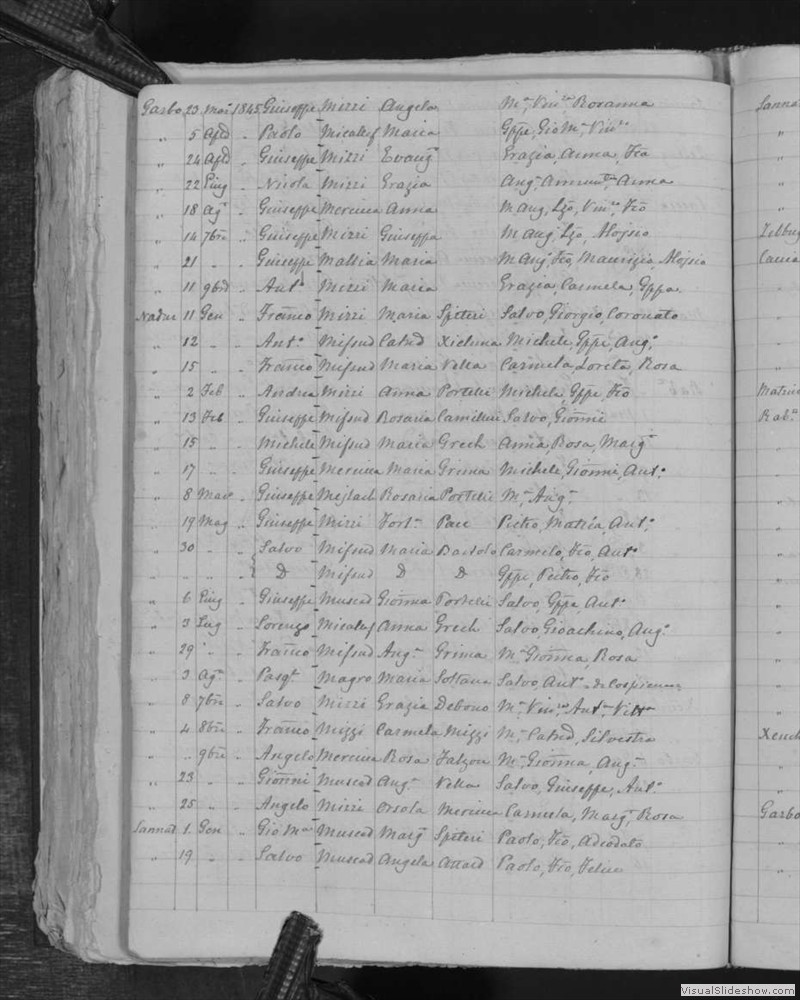 Garbo 23 Mar 1845 Giuseppe Mizzi Angela Mª Vinᶜᵃ Rosanna
„ 5 Aple „ Paolo Micallef Maria Gppe, Gio Mª, Vinᶜᵒ
„ 24 Aple „ Giuseppe Mizzi Evangᵗᵃ Grazia, Anna, Fco
„ 22 Giug „ Nicola Mizzi Grazia Angᵃ, Annunᵗᵃ, Anna
„ 18 Agᵗᵒ „ Giuseppe Mercieca Anna M. Angᵃ, Lzo, Vinᶜᵒ, Fco
„ 14 7bre „ Giuseppe Mizzi Giuseppa M. Angᵃ, Lzo, Alojsio
„ 21 „ „ Giuseppe Mallia Maria M. Angᵃ, Fco, Maurizio, Alojsio
„ 11 9bre „ Antᵒ Mizzi Maria Grazia, Carmela, Gppa
Nadur 11 Gen „ Franco Mizzi Maria Spiteri Salvo, Giorgio, Coronato
„ 12 „ „ Antᵒ Mifsud Catnd Xicluna Michele, Gppe, Angᵒ
„ 15 „ „ Franco Mifsud Maria Vella Carmela, Loreta, Rosa
„ 2 Feb „ Andrea Mizzi Anna Portelli Michele, Gppe, Fco
„ 13 Feb „ Giuseppe Mifsud Rosaria Camilleri Salvo, Gionni
„ 15 „ „ Michele Mifsud Maria Grech Anna, Rosa, Margᵗᵃ
„ 17 „ „ Giuseppe Mercieca Maria Grima Michele, Gionni, Antᵒ
„ 8 Mar „ Giuseppe Mejlach Rosaria Portelli Mª Angᵃ
„ 19 Mag „ Giuseppe Mizzi Fortᵃ Pace Pietro, Mattia, Antᵒ
„ 30 „ „ Salvo Mifsud Maria Bartolo Carmelo, Fco, Antᵒ
„ „ „ D Mifsud D D Gppe, Pietro, Fco
„ 6 Giug „ Giuseppe Muscad Gionna Portelli Salvo, Gppe Antᵒ
„ 3 Lug „ Lorenzo Micallef Anna Grech Salvo, Gioachino, Angᵒ
„ 29 „ „ Franco Mifsud Angᵃ Grima Mª Gionna, Rosa
„ 3 Agᵗᵒ „ Pasqˡᵉ Magro Maria Soltana Salvo, Antᵒ
„ 8 7bre „ Salvo Mizzi Grazia Debono Mª Vinᶜᵃ, Antᵃ
„ 4 8bre „ Franco Mizzi Carmela Mizzi Mª Catnd, Silvestra
„ „ 9bre „ Angelo Mercieca Rosa Falzon Mª Gionna, Angᵃ
„ 23 „ „ Gionni Muscad Angᵃ Vella Salvo, Giuseppe, Antᵒ
„ 25 „ „ Angelo Mizzi Orsola Mercieca Carmela, Margᵗᵃ, Rosa
Sannat 1 Gen „ Gio Mª Muscad Margᵗᵃ Spiteri Paolo, Fco, Adeodato
„ 19 „ „ Salvo Muscad Angela Attard Paolo, Fco, Felice
Sannat
Garbo
VisualSlideshow.com